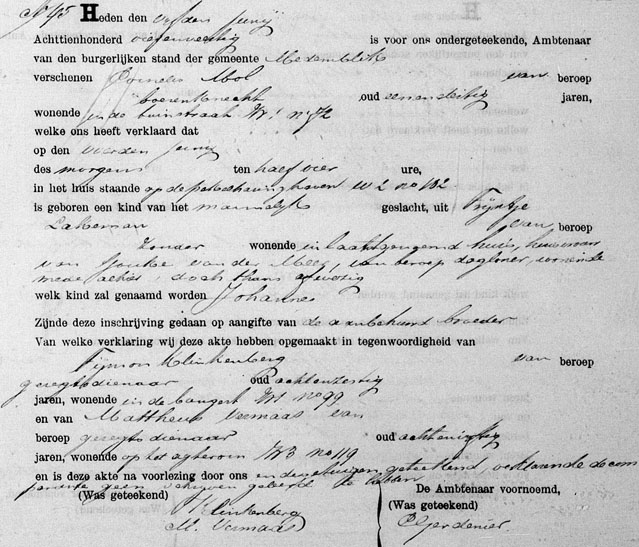 N 45 Heden den vijfden Junij
Achttienhonderd is voor ons ondergeteekende, Ambtenaar
van den burgerlijken stand der gemeente Medemblik
verschenen Cornelis Mol van beroep
boerenknecht oud eenendertig jaren,
wonende in de tuinstraat W 1 no 72
welke ons heeft verklaard dat
op den vierden Junij
des morgens ten half vier ure,
in het huis staande op de W 2 no 132
is geboren een kind van het mannelijk geslacht, uit Trijntje
Lakeman van beroep
zonder wonende in laatstgemeld huis, huisvrouw
van van der Meer, van beroep dagloner, wonende
mede aldaar, doch thans afwezig
welk kind zal genaamd worden Johannes
Zijnde deze inschrijving gedaan op aangifte van de aanbehuwd broeder
Van welke verklaring wij deze akte hebben opgemaakt in tegenwoordigheid van
Tijmon Klinkenberg van beroep
geregtsdienaar oud achtenzestig
jaren, wonende in de bangert W 1 no 99
en van Mattheus Vermaas van
beroep geregtsdienaar oud
jaren, wonende op het W 3 no 119
en is deze akte na voorlezing door ons en de getuigen geteekend, verklarende de com
parant geen schrijven geleerd te hebben
(Was geteekend) De Ambtenaar voornoemd,
Klinkenberg (Was geteekend)
M. Vermaas P Gerdenier.